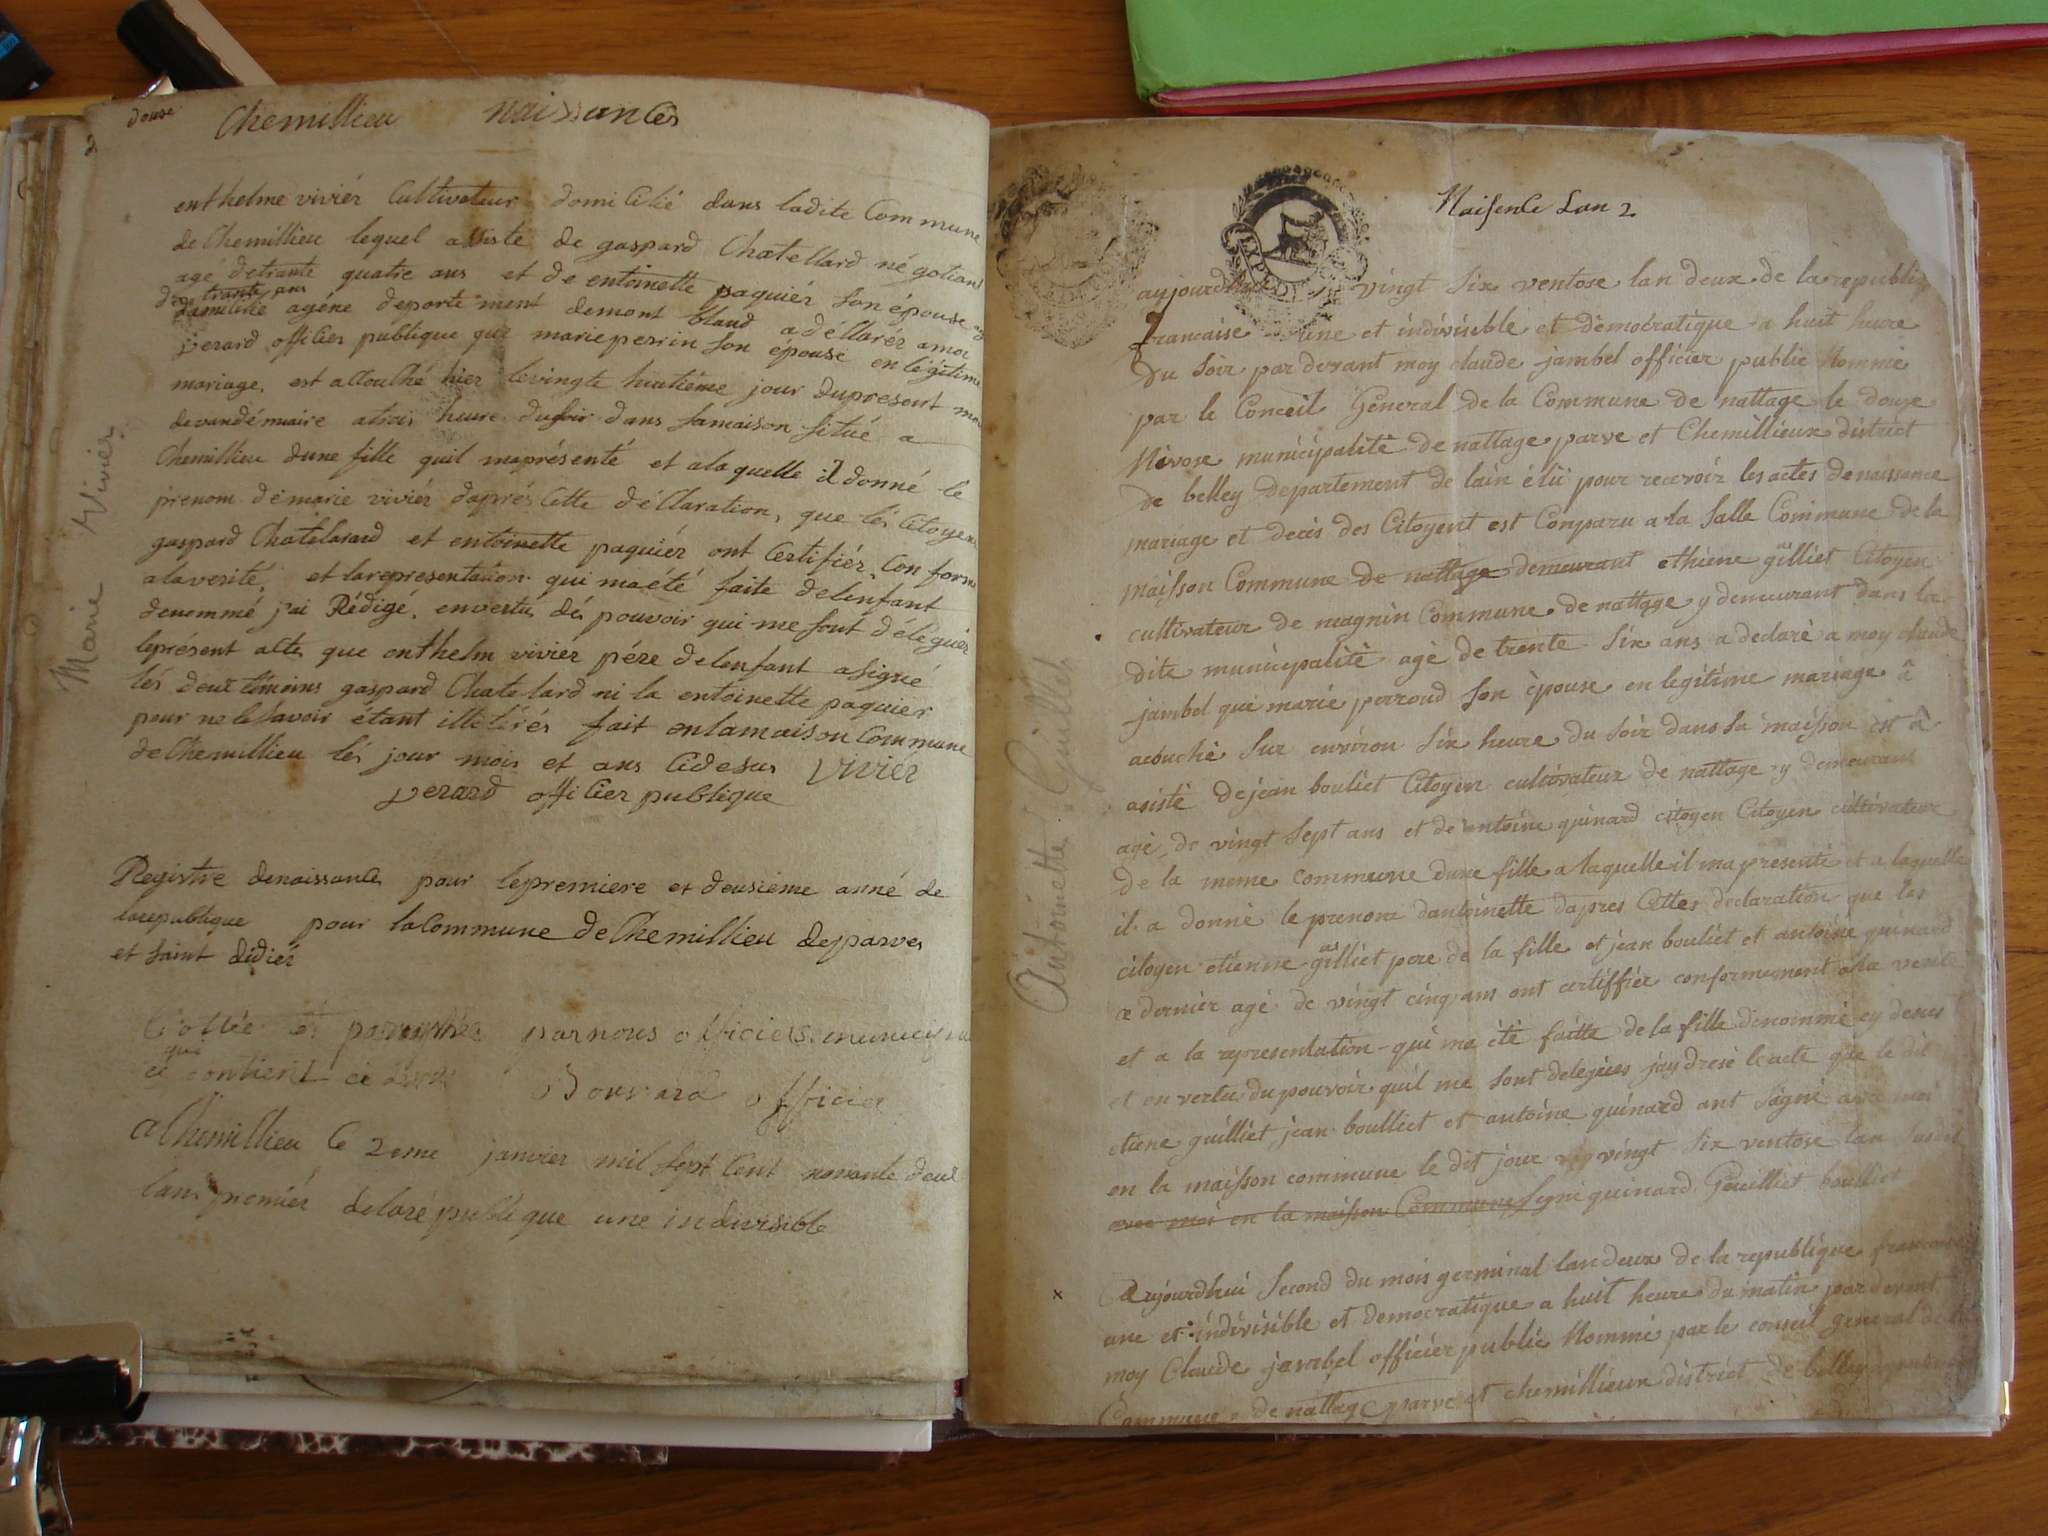 douse
Chemillieu naissances
enthelme viviér Cultivateur domicilié dans ladite Commune
de Chemillieu lequel assisté de gaspard Chatellard négotiant
agé detrante quatre ans et de entoinette paquiér son épouse agé
de trante ans
domicilié agéne deporte ment demont bland a déllarér amoi
verard officier publique que marie perrin son épouse en légitime
mariage, est accouché hier levingte huitiéme jour dupresent mois
devandémiaire atrois heure dusoir dans samaison situé a
Chemillieu dune fille quil maprésenté et alaquelle il donné le
prenom démarie viviér daprés cette déllaration, que lés Citoyens
gaspard Chatelarard et entoinette paquiér ont Certifiér Con forme
alaverité, et larepresentation qui maété faite delenfant
denommé j'ai Rédigé, envertu dés pouvoir qui me sont déléguér
leprésent alte que enthelm viviér pére delenfant asigné
lés deux témoins gaspard Chatelard ni la entoinette paquier
pour ne le Savoir étant illétérés fait enlamaison Commune
de Chemillieu lés jour mois et ans Cidesus viviér
verard officier publique
Marie Vivier
Registre denaissance pour lepremiere et deusiéme anné de
larepublique pour la Commune de Chemillieu deparves
et saint didiér
Cottée et paraphée par nous officiers municipaux
que
contient
officier
a Chemillieu le 2eme janvier mil sept Cent nonante deux
lans premiér delarépublique une indivisible
Naisence Lan 2
aujourdhui vingt six ventose lan deux de la republique
francaise une et indivisible et démocratique a huit heure
du soir par devant moy claude jambel officier public Nommé
par le Conceil Général de la Commune de nattage le douze
Nivose municipalité de nattage parve et Chemillieux district
de belley departement de lain élü pour recevoir les actes de naissance
mariage et decès des Citoyent est Comparu a la Salle Commune de la
maisson Commune de nattage demeurant ethiene gilliet Citoyen
cultivateur de magnin Commune de nattage y demeurant dans la
dite municipalité agé de trente six ans a declaré a moy claude
jambel que marie perroud son épouse en legitime mariage â
acouché sur environ six heure du soir dans sa maisson est â
asisté de jean bouliet Citoyen cultivateur de nattage y demeurant
agé de vingt sept ans et de antoine quinard citoyen Citoyen cultivateur
de la meme commune dune fille a laquelle il ma presenté et a laquelle
il a donné le prenom dantoinette dapres Cettes declaration que les
citoyen etienne gilliet pere de la fille et jean bouliet et antoine quinard
ce dernier agé de vingt cinq ans ont certiffiér conformement a la verité
et a la representation qui ma été faitte de la fille dénommé cy desus
et en vertu du pouvoir quil me sont delegués jay dresé lacte que le dit
etiene guilliet jean boulliet et antoine quinard ont signé avec moi
en la maisson commune le dit jour vingt six ventose lan susdit
avec moi en la maisson Commune signé quinard Geuilliet boulliet
Antoinette Guilliet
x Aujourdhui second du mois germinal lan deux de la republique francaise
une et indivisible et démocratique a huit heure du matin par devent
moy Claude jambel officiér public Nommé par le conseil general de la
Commune de nattage parve et chemillieux district de belley